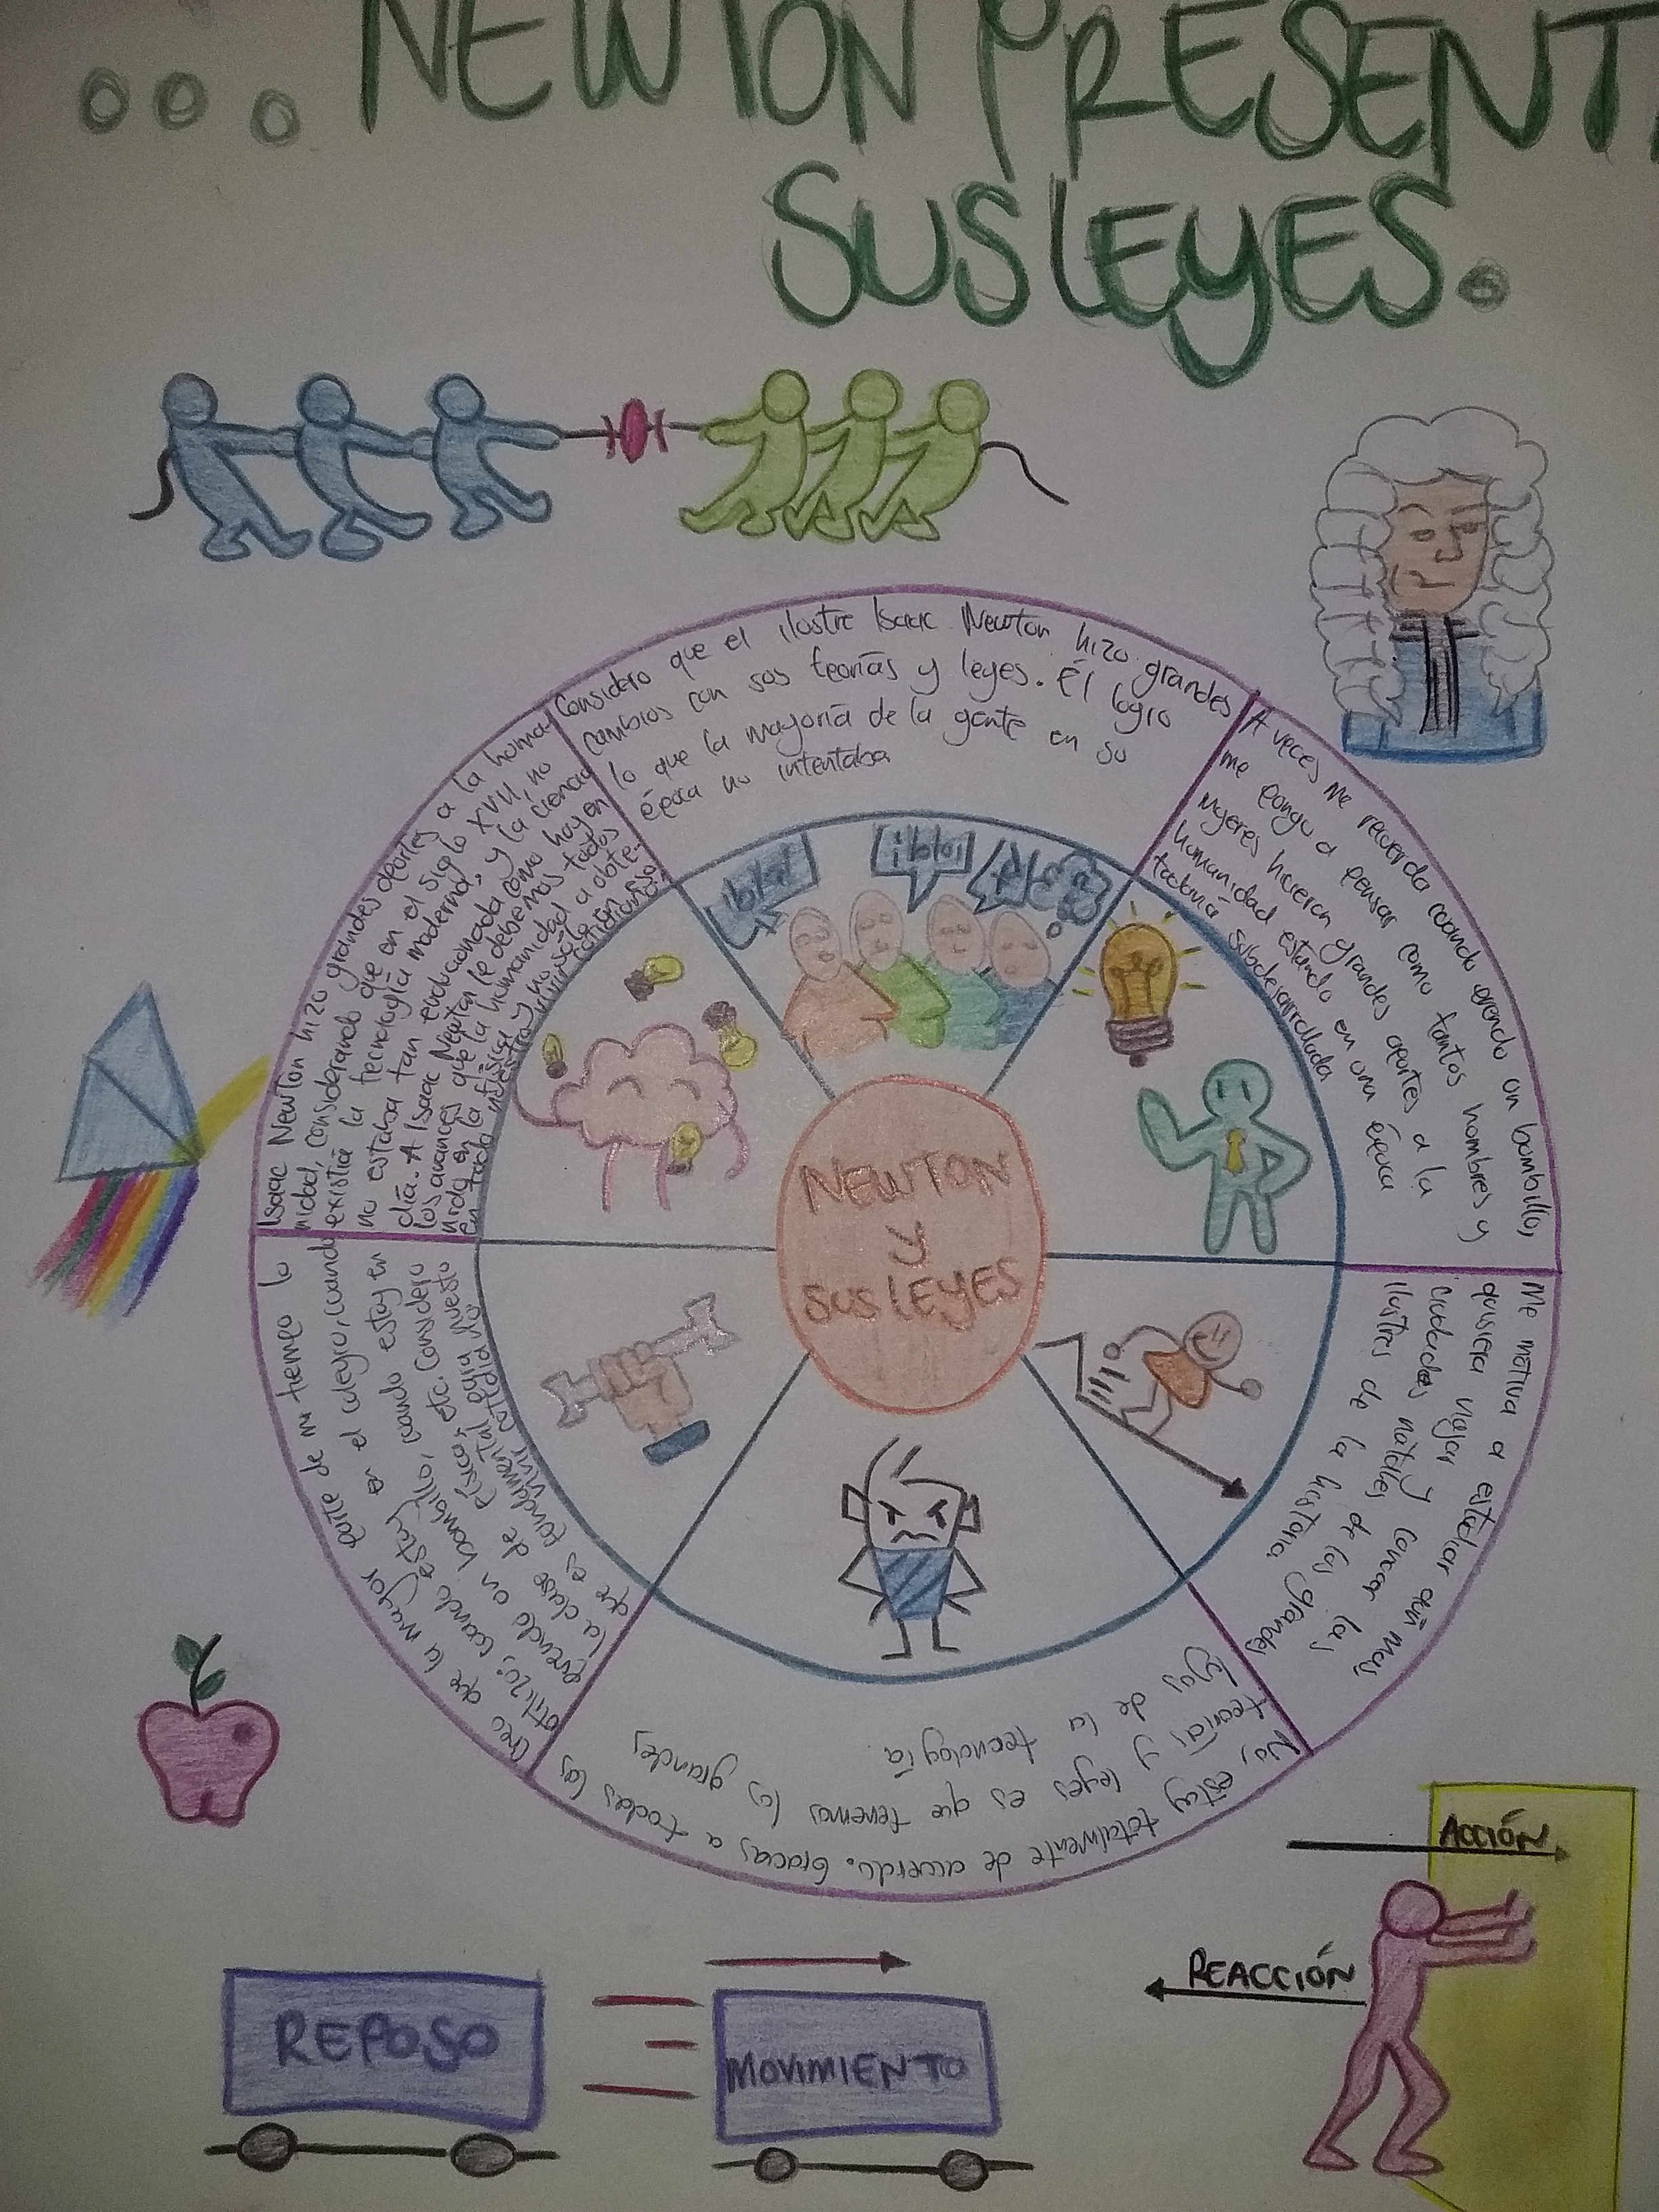 ... NEWTON PRESENT
SUS LEYES.
Considero que el ilustre Isaac Newton hizo grandes
cambios con sus teorías y leyes. Él logro
lo que la mayoria de la gente en su
época no intentaba
A veces me recuerda cuando enciendo un bombillo,
me pongo a pensar como tantos hombres y
mujeres hicieron grandes aportes a la
humanidad estando en una época
todavía subdesarrollada
Me motiva a estudiar aún mas,
quisiera viajar y conocer las
ciudades natales de los grandes
ilustres de la historia
No, estoy totalmente de acuerdo. Gracias a todas las
teorías y leyes es que tenemos los grandes
de la tecnología.
Creo que la mayor parte de mi tiempo lo
utilizo; cuando estoy en el colegio, cuando
enciendo un bombillo, cuando estoy en
la clase de física, etc. Considero
que es fundamental para nuesto
vivir
Isaac Newton hizo grandes aportes a la huma-
nidad, considerando que en el siglo XVII, no
existiá la tecnología moderna, y la ciencia
no estaba tan evolucionada como hoy en
día. A Isaac Newton le debemos todos
los avances que la humanidad a obte-
nido en la física y no sólo en eso,
en todo nuestro vivir cotidiano
NEWTON
Y
SUS LEYES
ACCIÓN
REACCIÓN
REPOSO
MOVIMIENTO